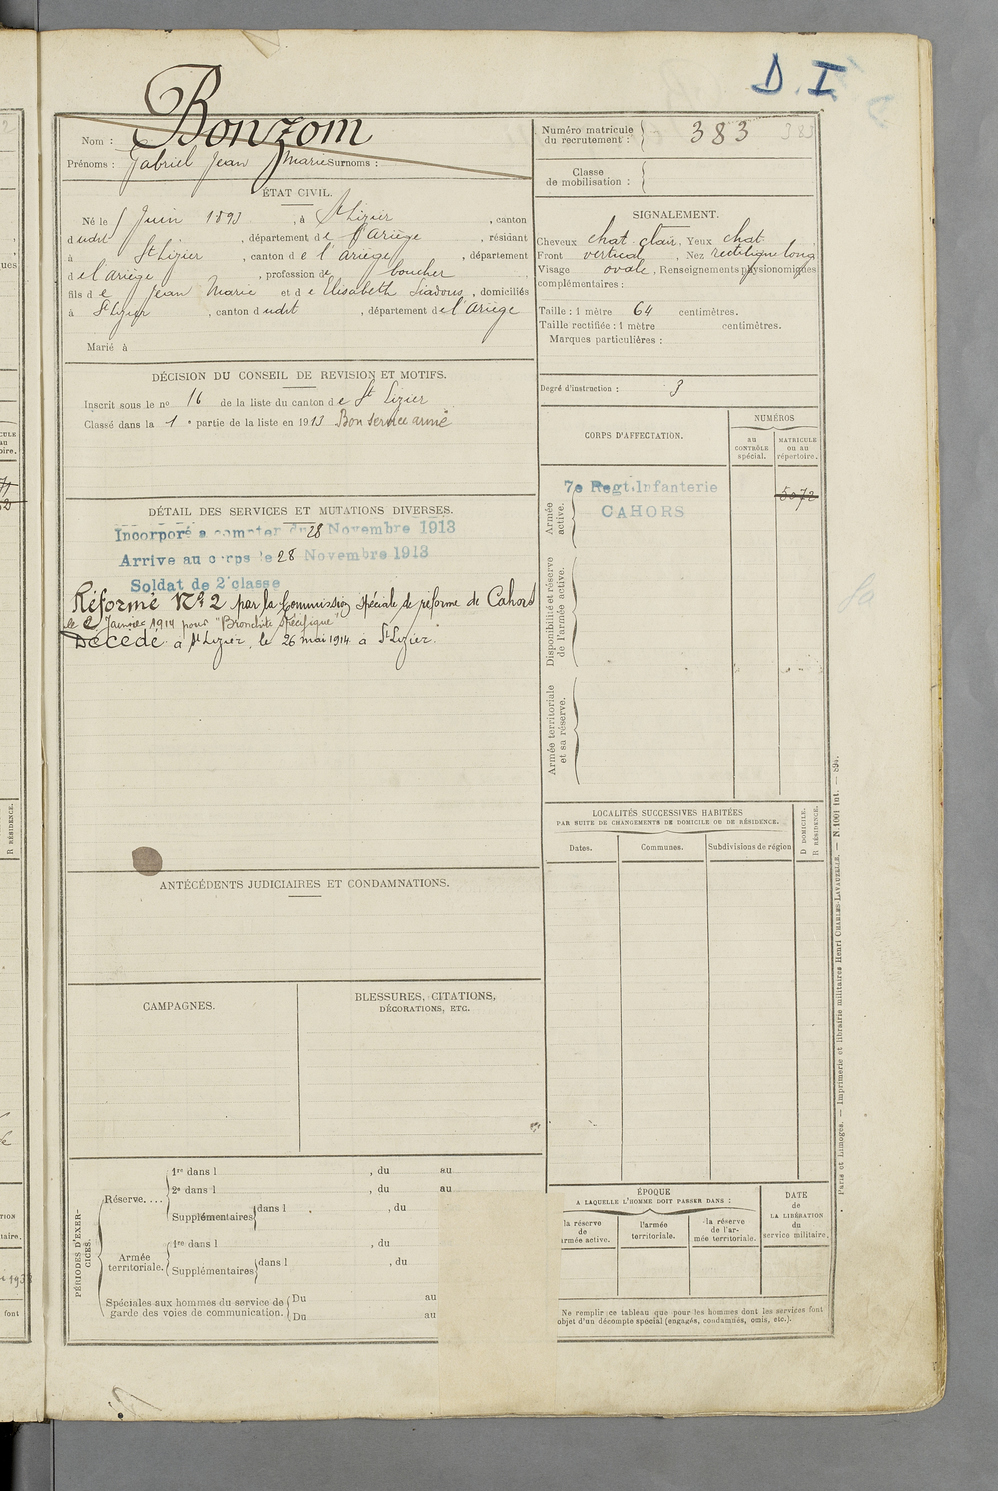 D. I.
Bonzom
Nom :
Prénoms : Gabriel Jean Marie Surnoms :
Numéro matricule du recrutement : 383
Classe de mobilisation :
ÉTAT CIVIL.
Né le Juin 1893, à St Lizier, canton
dudit, département de l'Ariège, résidant
à St Lizier, canton de l'Ariège, département
de l'Ariège, profession de boucher
fils de Jean Marie et de Elisabeth Siadous, domiciliés
à St Lizier, canton dudit, département de l'Ariège
Marié à
SIGNALEMENT.
Cheveux chat. clair, Yeux chat.
Front vertical, Nez rectiligne long
Visage ovale, Renseignements physionomiques
complémentaires :
Taille : 1 mètre 64 centimètres.
Taille rectifiée : 1 mètre centimètres.
Marques particulières :
Degré d'instruction : 3
DÉCISION DU CONSEIL DE REVISION ET MOTIFS.
Inscrit sous le no 16 de la liste du canton de St Lizier
Classé dans la 1e partie de la liste en 1913 Bon service armé
DÉTAIL DES SERVICES ET MUTATIONS DIVERSES.
Incorporé à compter du 28 Novembre 1913
Arrivé au corps le 28 Novembre 1913
Soldat de 2e classe
Réformé No 2 par la Commission Spéciale de réforme de Cahors
le 2 Janvier 1914 pour "Bronchite spécifique"
Décédé à St Lizier, le 26 mai 1914 à St Lizier.
CORPS D'AFFECTATION.
NUMÉROS
au CONTRÔLE spécial.
MATRICULE ou au répertoire.
Armée active.
7e Regt. Infanterie
CAHORS
5072
Disponibilité et réserve de l'armée active.
Armée territoriale et sa réserve.
LOCALITÉS SUCCESSIVES HABITÉES
PAR SUITE DE CHANGEMENTS DE DOMICILE OU DE RÉSIDENCE.
Dates.
Communes.
Subdivisions de région
D DOMICILE.
R RÉSIDENCE.
ANTÉCÉDENTS JUDICIAIRES ET CONDAMNATIONS.
CAMPAGNES.
BLESSURES, CITATIONS,
DÉCORATIONS, ETC.
PÉRIODES D'EXERCICES.
Réserve....
1re dans l , du au
2e dans l , du au
Supplémentaires dans l , du
Armée territoriale.
1re dans l , du
Supplémentaires dans l , du
Spéciales aux hommes du service de garde des voies de communication.
Du au
Du au
ÉPOQUE
A LAQUELLE L'HOMME DOIT PASSER DANS :
la réserve de armée active.
l'armée territoriale.
la réserve de l'armée territoriale.
DATE de LA LIBÉRATION du service militaire.
Ne remplir ce tableau que pour les hommes dont les services font
objet d'un décompte spécial (engagés, condamnés, omis, etc.).
Paris et Limoges. — Imprimerie et librairie militaires Henri CHARLES-LAVAUZELLE. — N. 1001 int.
R RÉSIDENCE.
font